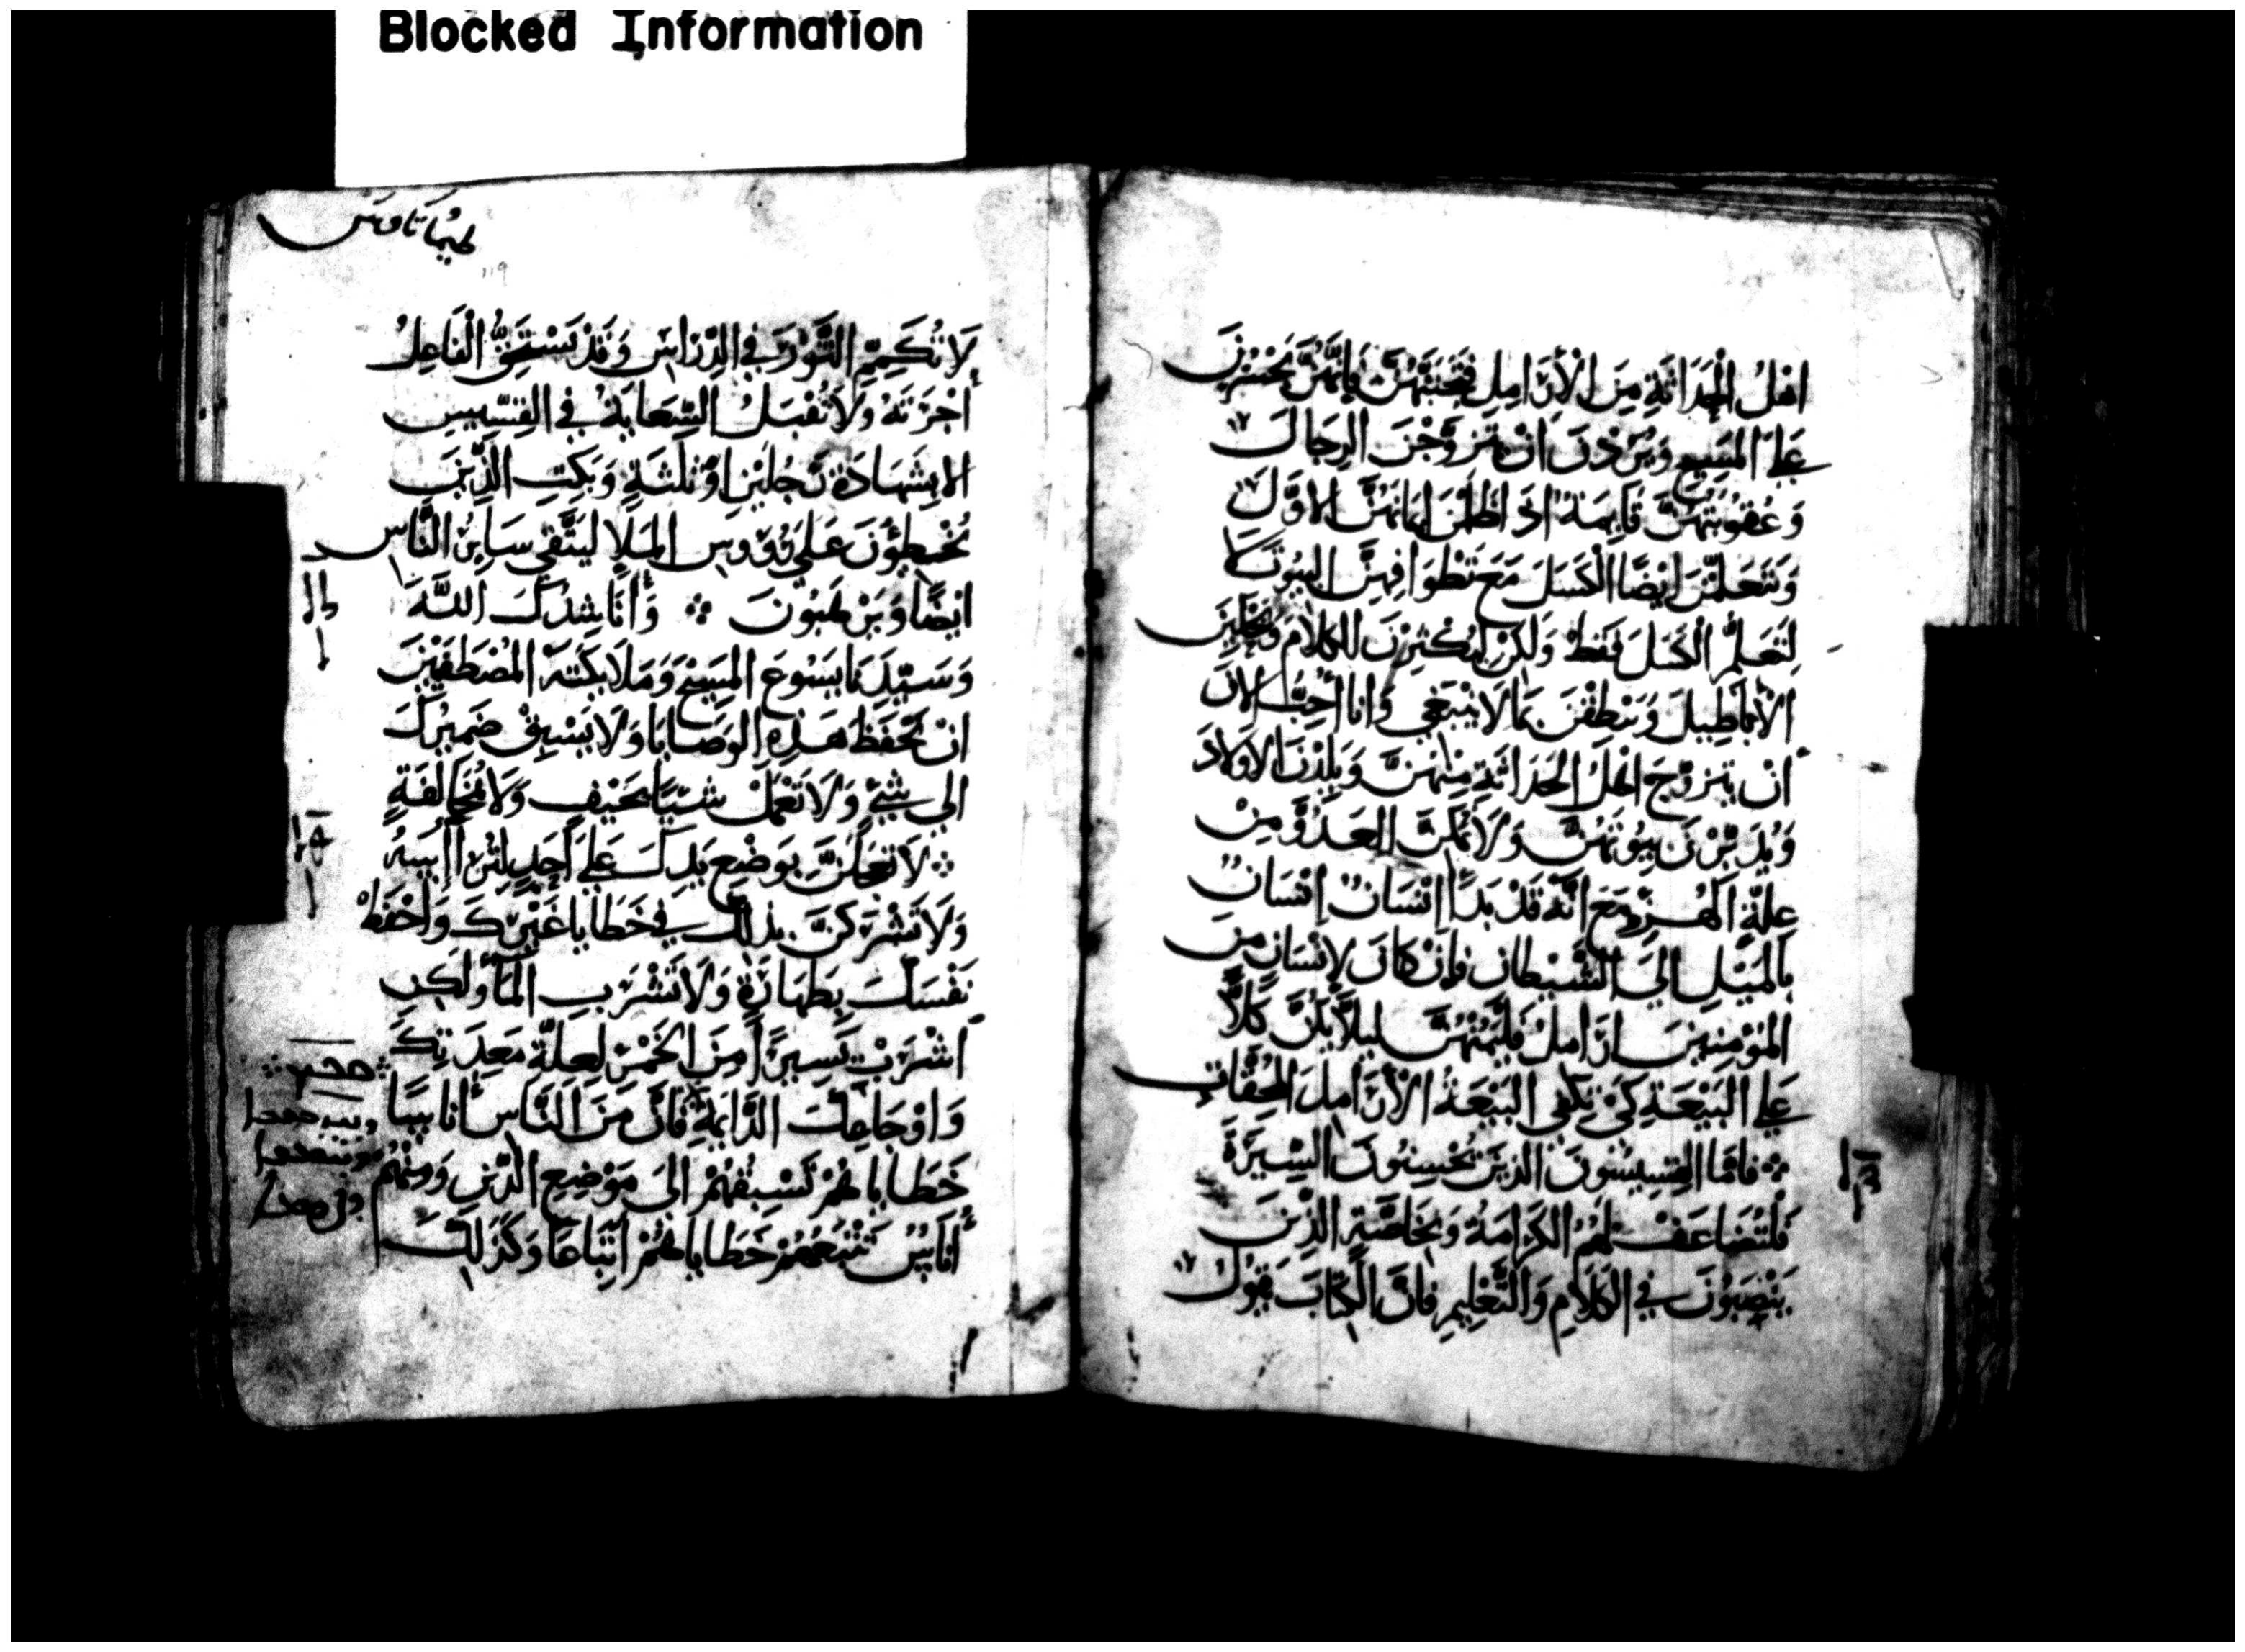 Blocked Information
اهْلُ الْحَدَاثَةِ مِنَ الْأَرَامِلِ فَتَجَنَّبْهُنَّ فَإِنَّهُنَّ
عَلَى المَسِيحِ وَيُرِدْنَ انْ يَتَزَوَّجْنَ الرِجَالَ
وَعُقُوبَتُهُنَّ قَايِمَةٌ اذ ايمَانَهُنَّ الاوَّلَ
وَيَتَعَلَّمْنَ ايْضًا الْكَسَلَ مَعَ تَطْوَافِهِنَّ البُيُوتَ لَا
لِتَعَلُّمِ الْكَسَلِ فَقَطْ وَلَكِنْ لِيُكْثِرْنَ الكَلَامَ
الْأَبَاطِيلَ وَيَنْطِقْنَ بِمَا لَا يَنْبَغِي وَانا أُحِبُّ الآنَ
أنْ يَتَزَوَّجَ اهْلُ الحَدَاثَةِ مِنْهُنَّ وَيَلِدْنَ الاوْلَادَ
وَيُدَبِّرْنَ بُيُوتَهُنَّ وَلَا يُمَكِّنَّ العَدُوَّ مِنْ
عِلَّةِ الْهُزْوِ مَعَ انَّهُ قَدْ بَدَأَ انْسَانٌ انْسَانٌ
بِالمَيْلِ الَى الشَّيْطَانِ فَإنْ كَانَ لِإنْسَانٍ مِنَ
المُؤْمِنِينَ ارَامِلُ فَلْيَمُنْهُنَّ لِيَلَّا يَكُنَّ كَلًّا
عَلَى البَيْعَةِ كَيْ تَكْفِي البَيْعَةُ الْأَرَامِلَ المُحِقَّاتِ
فَامَّا القِسِيسُونَ الذينَ يُحْسِنُونَ السِّيرَةَ
فَلْتُضَاعَفْ لَهُمُ الكَرَامَةُ وَبِخَاصَّةٍ الذِينَ
يَنْصِبُونَ فِي الْكَلَامِ وَالتَّعْلِيمِ فَانَّ الْكِتَابَ يَقُولُ
طيماتاوس
119
لَا تُكَمِّمِ الثَّوْرَ فِي الدِّرَاسِ وَقَدْ يَسْتَحِقُّ الْفَاعِلُ
أُجْرَتَهُ وَلَا تُقْبَلُ السِّعَايَةُ فِي القِسِّيسِ
الا بِشَهَادَةِ رَجُلَيْنِ اوْ ثَلَثَةٍ وَبَكِّتِ الذِّينَ
يُخْطِؤُونَ عَلَى رُؤُوسِ المَلَإِ لِيَتَّقِيَ سَايِرُ النَّاسِ
ايْضًا وَيَرْهَبُونَ وَأُنَاشِدُكَ اللَّهَ
وَسَيِّدَنَا يَسُوعَ المَسِيحَ وَمَلَايِكَتَهَ المُصْطَفَيْنَ
انْ تَحْفَظَ هَذِهِ الوَصَايَا وَلَا يَسْبِقْ ضَمِيرُكَ
الى شَيْءٍ وَلَا تَعْمَلْ شَيْيًا بِحَيْفٍ وَلَا مُخَالَفَةٍ
لَا تَعْجَلَنَّ بِوَضْعِ يَدِكَ عَلَى أَحَدٍ
وَلَا تَشْرَكَنَّ بِذَلِكَ فِي خَطَايَا غَيْرِكَ وَاحْفَظْ
نَفْسَكَ بِطَهَارَةٍ وَلَا تَشْرَبِ المَاءَ وَلَكِنِ
اشْرَبْ يَسِيرًا مِنَ الخَمْرِ لِعِلَّةِ مَعِدَتِكَ
وَاوْجَاعِكَ الدَّايِمَةِ فَانَّ مِنَ النَّاسِ أُنَاسًا
خَطَايَاهُمْ تَسْبِقُهُمْ الَى مَوْضِعِ الدِّينِ وَمِنْهُم
أُنَاسٌ تَتْبَعُهُمْ خَطَايَاهُمْ اتِّبَاعًا وَكَذَلِكَ